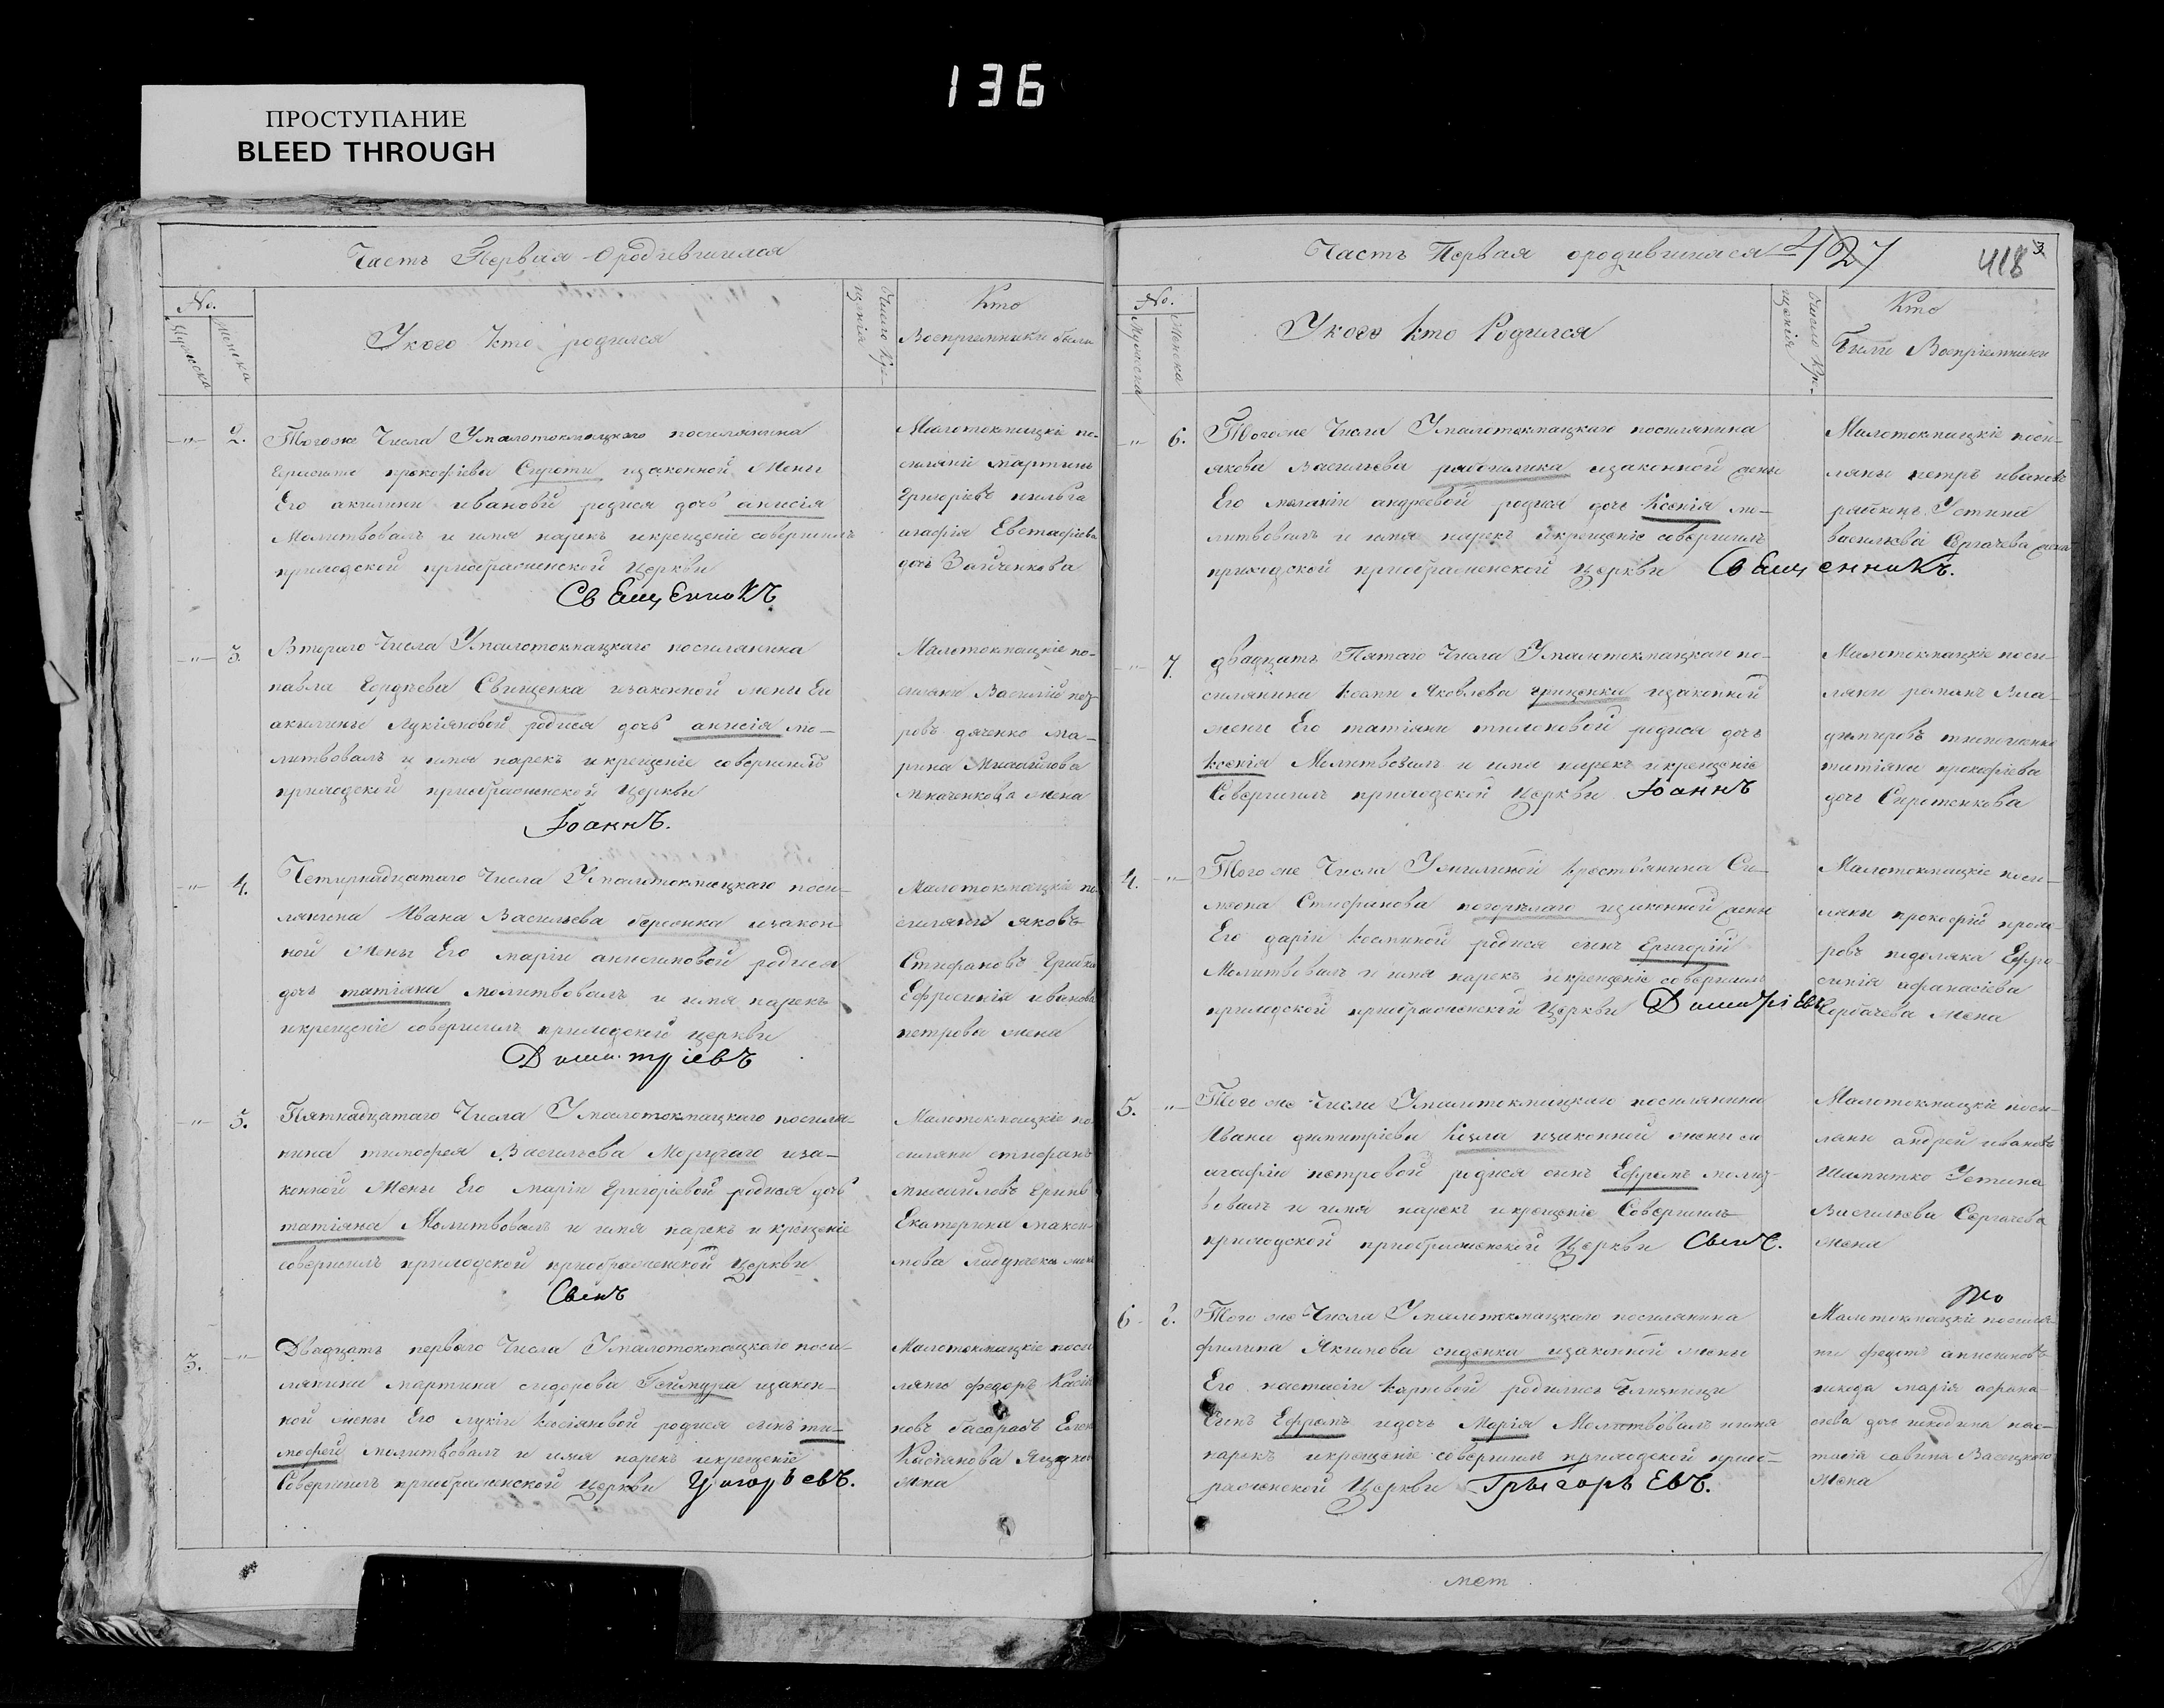 136
ПРОСТУПАНИЕ
BLEED THROUGH
Часть Первая Ородившихся
No.
Мужеска
Женска
Укого кто родился
Число Кр-
щенія
Кто
Воспріемники были
2.
Тогоже Числа Умалотокмацкаго поселянина
Герасима прокофіева Сироти изаконной жены
Его акилини ивановй родися дочь анисія
Молитвовалъ и имя нарекъ икрещеніе совершилъ
приходской приображенской церкви
СвЕщЕнникЪ
Малотокмацкіе по-
селяні мартинъ
Григоріевъ
агафія Евстафіева
дочь Зайченкова
3.
Втораго Числа Умалотокмацкаго поселянина
павла Гордѣева Свищенка изаконной жены Его
акилины Лукіяновой родися дочь анисія мо-
литвовалъ и имя нарекъ икрещеніе совершилъ
приходской приображенской Церкви
ІоаннЪ.
Малотокмацкіе по-
селяни Василій
ровъ дяченко ма-
рина Михайлова
Ткаченкова жена
4.
Четирнадцатаго Числа Умалотокмацкаго посе-
лянина Ивана Васильева изакон-
ной жены Его маріи анисимовой родися
дочь татіяна молитвовалъ и имя нарекъ
икрещеніе совершилъ приходской церкви
ДимитріевЪ
Малотокмацкіе по
селяни яковъ
Стефановъ
Ефросинія иванова
петрова жена
5.
Пятнадцатаго Числа Умалотокмацкаго поселя-
нина тимофея Васильева Моругаго иза-
конной жены Его маріи Григоріевой родися дочь
татіяна Молитвовалъ и имя нарекъ и крещеніе
совершилъ приходской приображенской церкви
Свенъ
Малотокмацкіе по
селяни стефанъ
михайловъ Гринь
Екатерина макси-
мова
3.
Двадцать перваго Числа Умалотокмацкаго посе-
лянина мартина сидорова изакон-
ной жены Его лукіи касіяновой родися синъ ти-
мофей молитвовалъ и имя нарекъ икрещеніе
Совершилъ приображенской Церкви
Малотокмацкіе посе
ляни федоръ Касія
новъ
Касіянова
жена
Часть Первая ородившихася
427
418
No.
Мужеска
Женска
Укого кто Родился
Число Кр-
щенія
Кто
Были Воспріемники
6.
Тогоже Числа Умалотокмацкаго поселянина
якова Васильева изаконной жены
Его меланіи андреевой родися дочь Ксенія мо-
литвовалъ и имя нарекъ икрещеніе совершилъ
приходской приображенской Церкви СвЕщенникЪ.
Малотокмацкіе посе-
ляны петръ ивановъ
Устина
васильева Сергачева жена
7.
двадцать Пятаго Числа Умалотокмацкаго по-
селянина Іоанн Яковлева гриценка изаконной
жены Его татіяни родися дочь
Ксенія Молитвовалъ и имя нарекъ икрещеніе
Совершилъ приходской Церкви ІоаннЪ
Малотокмацкіе посе-
ляни романъ Вла-
димировъ тимошенко
татіяна прокофіева
дочь Сиротенкова
4.
Того же Числа крестьянина Си-
меона Стефанова погорѣлаго изаконной жены
Его даріи косминой родися синъ Григорій
Молитвовалъ и имя нарекъ икрещеніе совершилъ
приходской приображенской Церкви ДимитріЕвъ
Малотокмацкіе посе-
ляни прокофій проко-
ровъ подоляка Ефро-
синія афанасіева
Горбачева жена
5.
Того же Числа Умалотокмацкаго поселянина
Ивана димитріева Козла изаконной жены его
агафіи петровой родися синъ Ефремъ молит-
вовалъ и имя нарекъ икрещеніе Совершилъ
приходской приображенской Церкви СвенЪ.
Малотокмацкіе посе-
ляни андрей ивановъ
Шапитко Устина
Васильева Сергачева
жена
6. 8.
Того же Числа Умалотокмацкаго поселянина
филипа Якимова сиденка изаконной жены
Его настасіи карповой родились близнецы
Синъ Ефремъ идочь Марія Молитвовалъ иимя
нарекъ икрещеніе совершилъ приходской приоб-
раженской Церкви ГрыгорьЕвЪ.
Малотокмацкіе поселя-
ни федотъ анисимовъ
шкода марія афана-
сіева дочь шкодина нас-
тасія савина
жена
мет